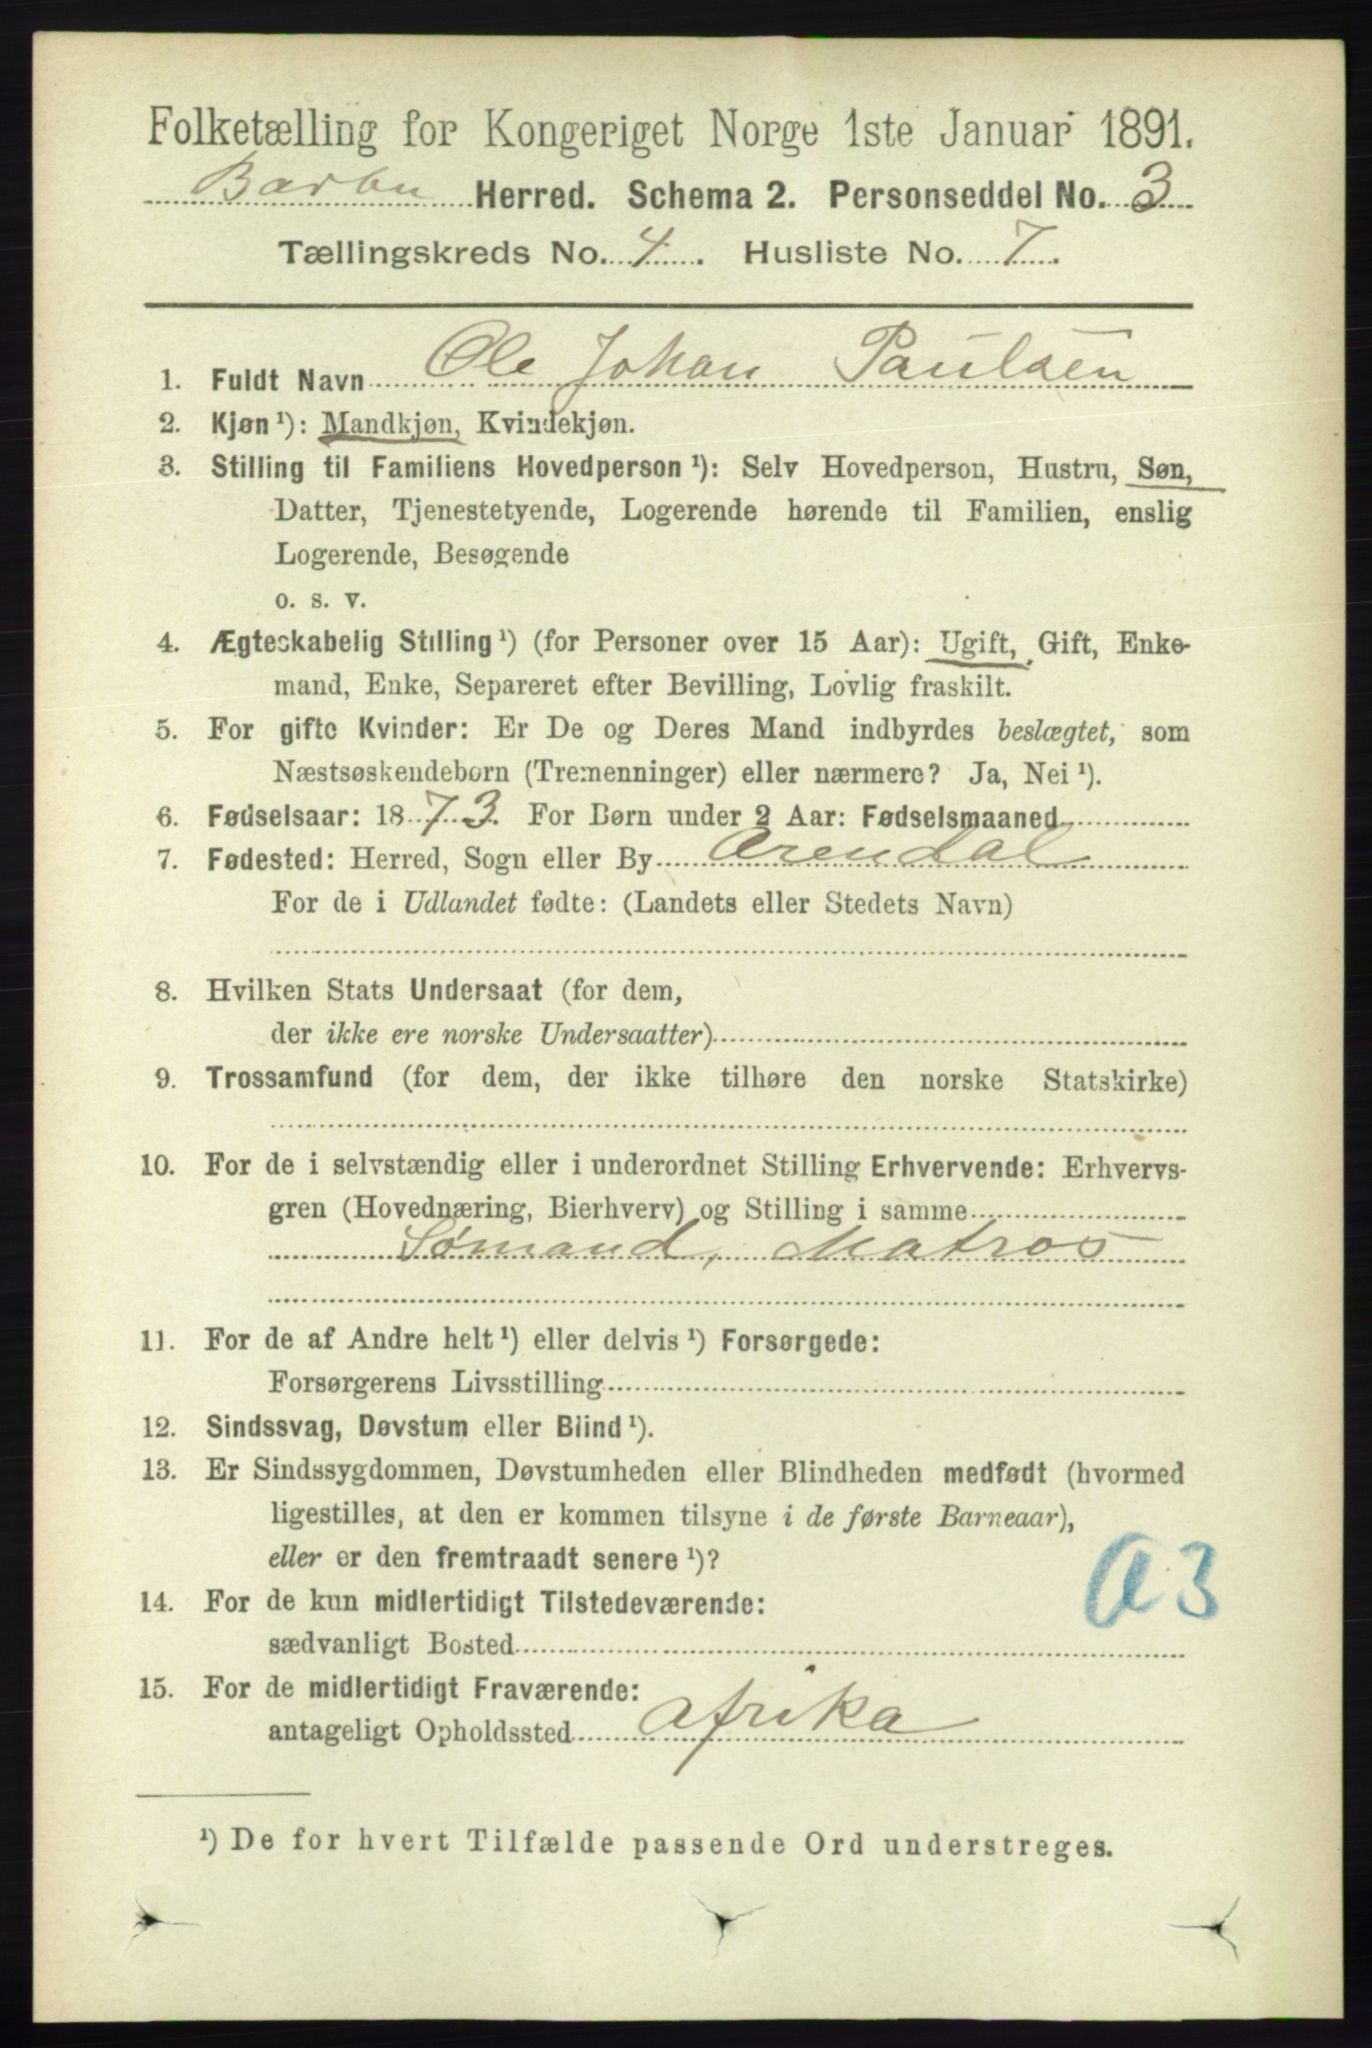 Folketælling for Kongeriget Norge 1ste Januar 1891.
Barbu Herred. Schema 2. Personseddel No. 3
Tællingskreds No. 4. Husliste No. 7.
1. Fuldt Navn Ole Johan Paulsen
2. Kjøn¹): Mandkjøn, Kvindekjøn.
3. Stilling til Familiens Hovedperson¹): Selv Hovedperson, Hustru, Søn,
Datter, Tjenestetyende, Logerende hørende til Familien, enslig
Logerende, Besøgende
o. s. v.
4. Ægteskabelig Stilling¹) (for Personer over 15 Aar): Ugift, Gift, Enke-
mand, Enke, Separeret efter Bevilling, Lovlig fraskilt.
5. For gifte Kvinder: Er De og Deres Mand indbyrdes beslægtet, som
Næstsøskendebørn (Tremenninger) eller nærmere? Ja, Nei¹).
6. Fødselsaar: 1873. For Børn under 2 Aar: Fødselsmaaned
7. Fødested: Herred, Sogn eller By Arendal
For de i Udlandet fødte: (Landets eller Stedets Navn)
8. Hvilken Stats Undersaat (for dem,
der ikke ere norske Undersaatter)
9. Trossamfund (for dem, der ikke tilhøre den norske Statskirke)
10. For de i selvstændig eller i underordnet Stilling Erhvervende: Erhvervs-
gren (Hovednæring, Bierhverv) og Stilling i samme
Sømand, Matros
11. For de af Andre helt¹) eller delvis¹) Forsørgede:
Forsørgerens Livsstilling
12. Sindssvag, Døvstum eller Blind¹).
13. Er Sindssygdommen, Døvstumheden eller Blindheden medfødt (hvormed
ligestilles, at den er kommen tilsyne i de første Barneaar),
eller er den fremtraadt senere¹)?
A3
14. For de kun midlertidigt Tilstedeværende:
sædvanligt Bosted
15. For de midlertidigt Fraværende:
antageligt Opholdssted Afrika
¹) De for hvert Tilfælde passende Ord understreges.